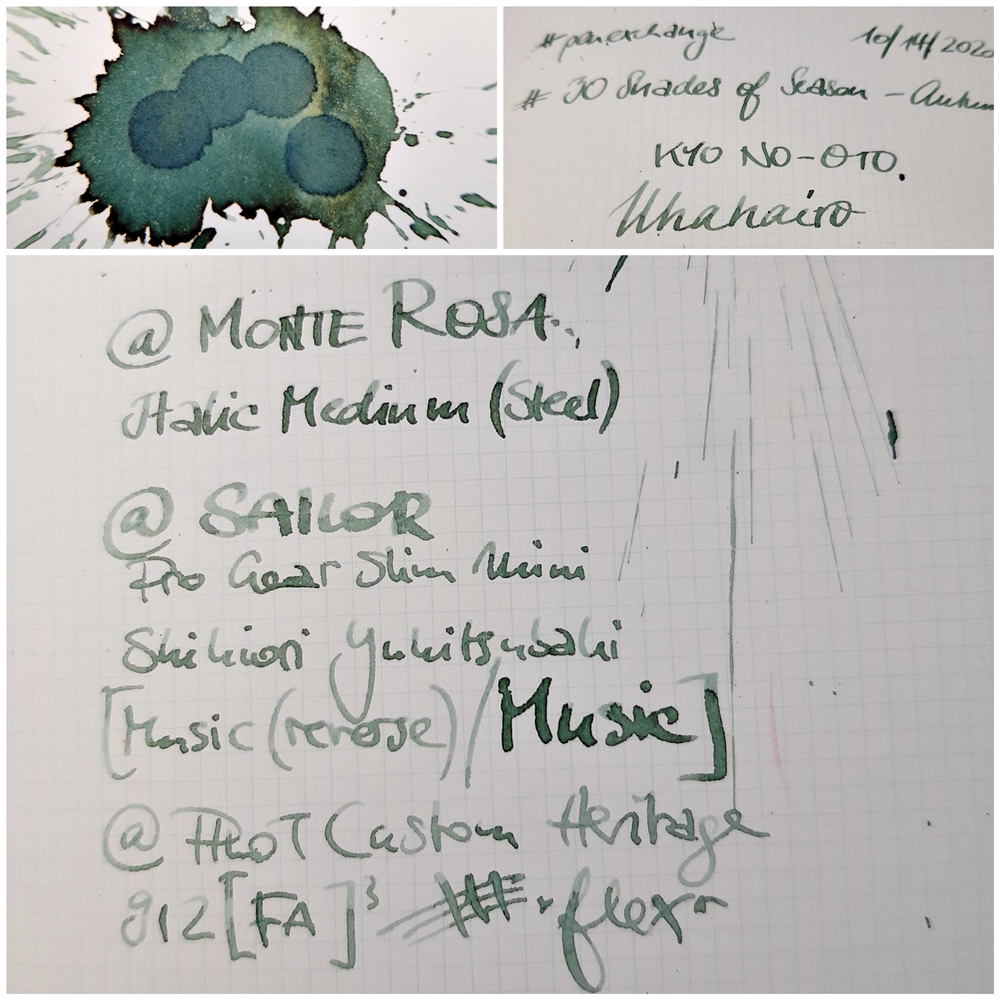 #penexchange 10/14/2020
# 30 Shades of Season - Autum
KYO NO-OTO.
Uhahairo
@ MONTE ROSA..
Italic Medium (Steel)
@ SAILOR
Pro Gear Slim Mini
Shikiori Yukitsubaki
[Music (reverse) / Music]
@ PILOT Custom Heritage
912 [FA]³ ### · flex~